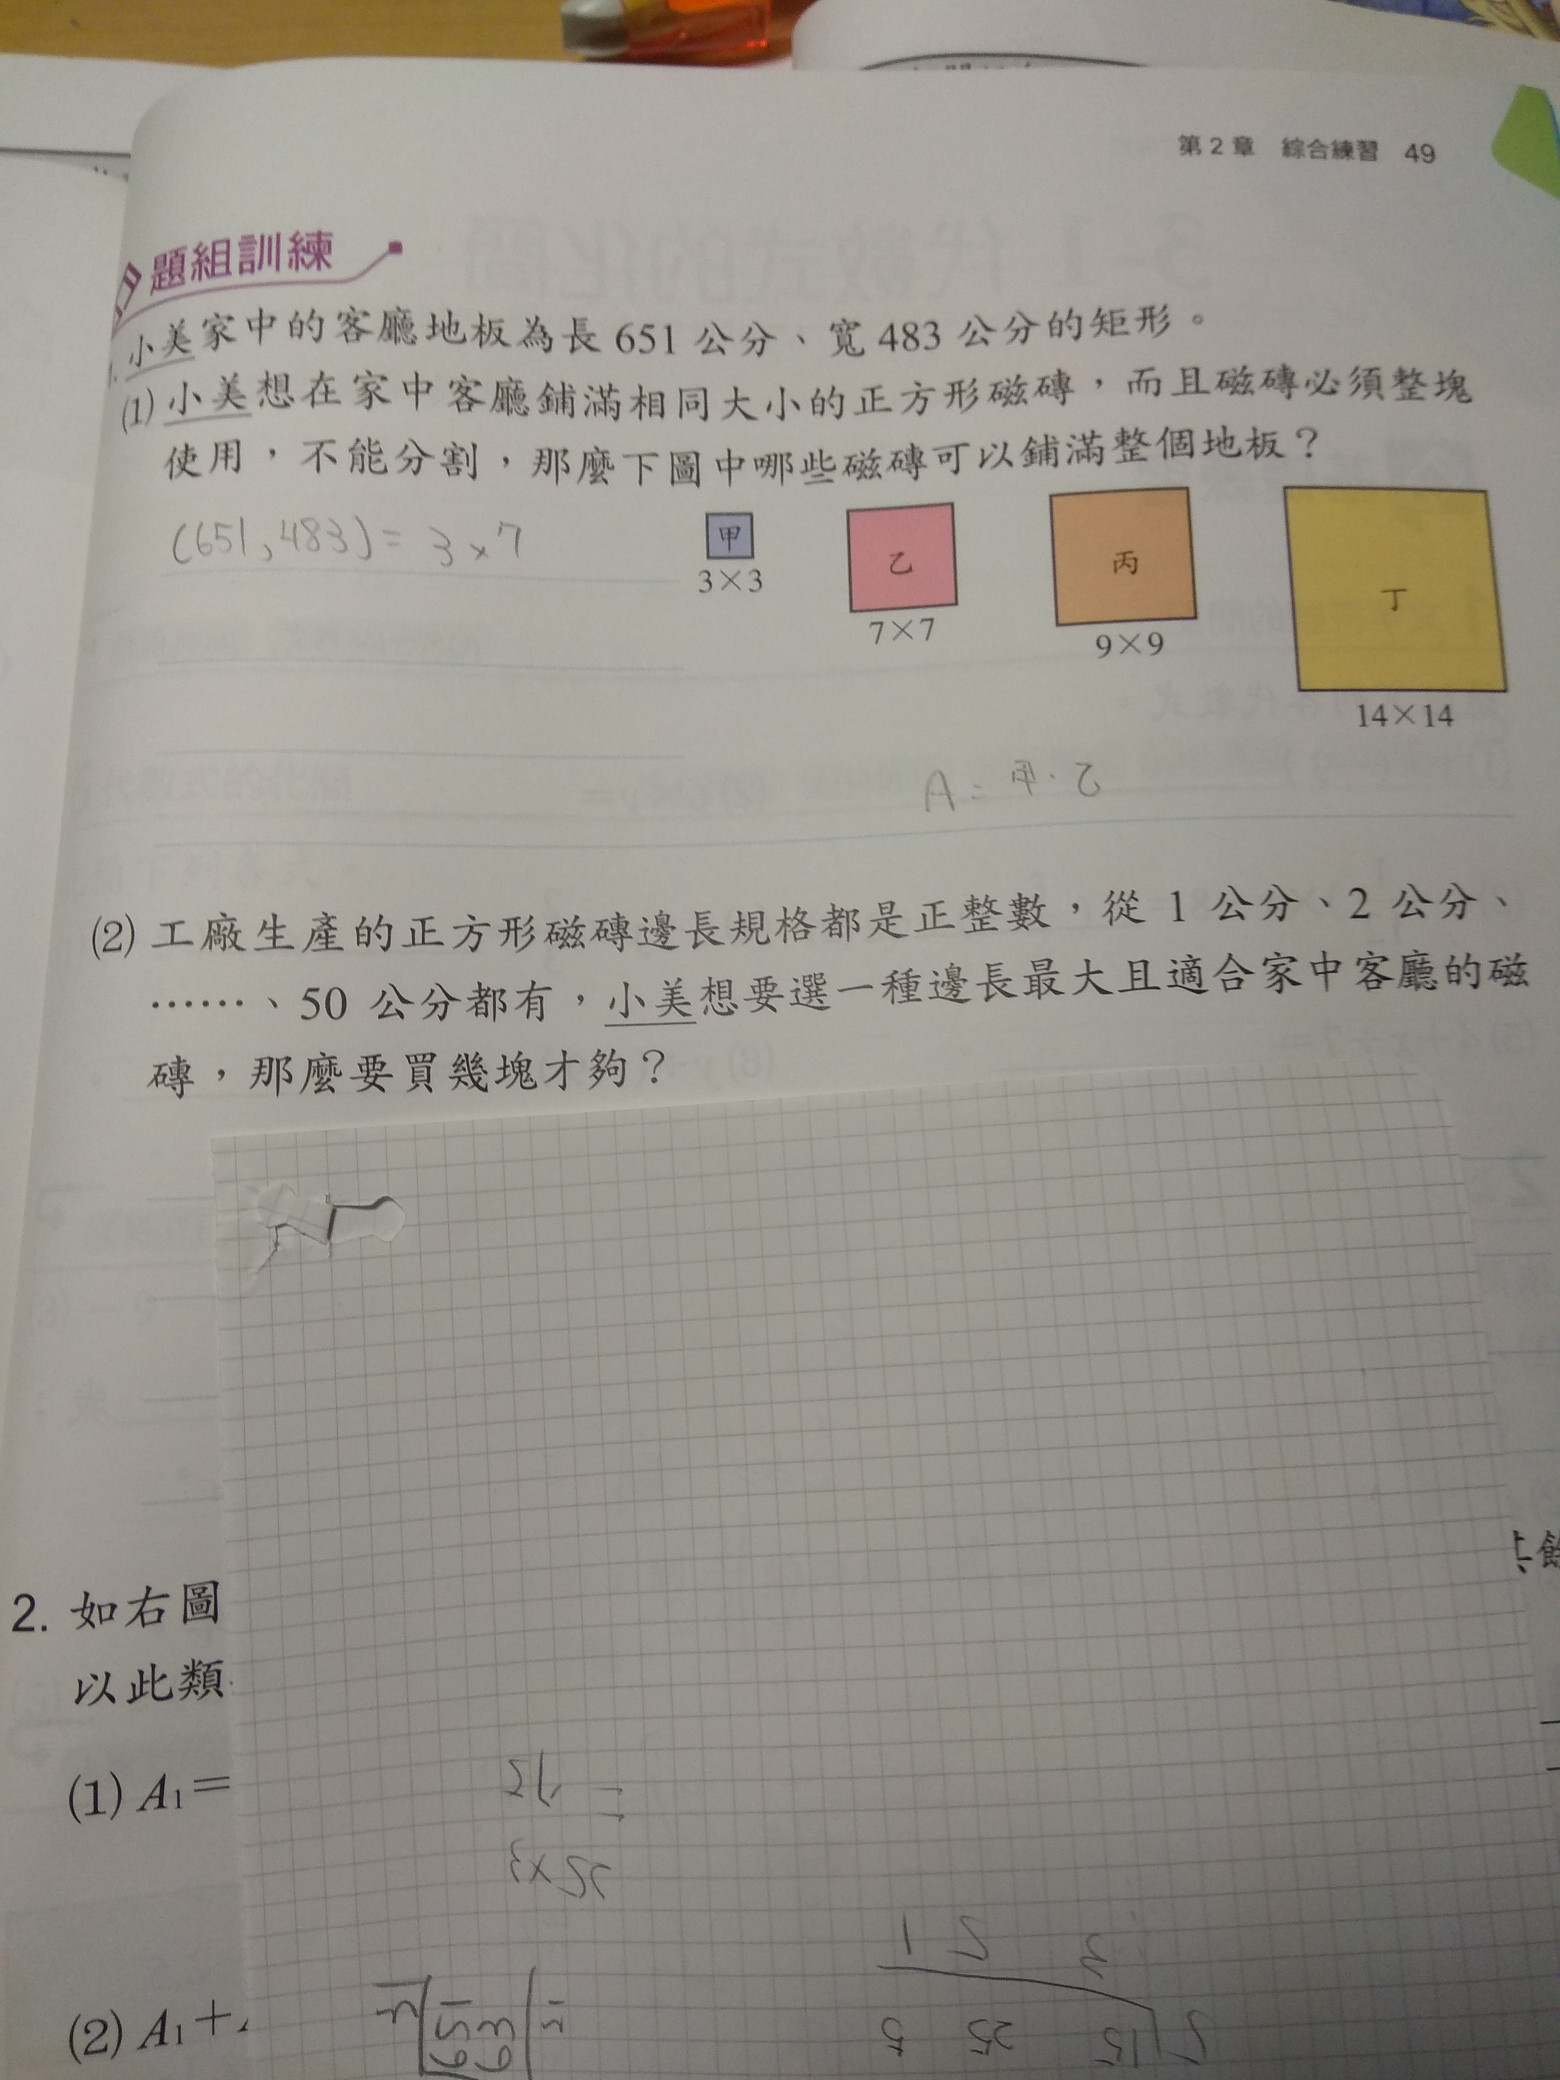 第 2 章 綜合練習 49
題組訓練
小美家中的客廳地板為長 651 公分、寬 483 公分的矩形。
(1) 小美想在家中客廳鋪滿相同大小的正方形磁磚，而且磁磚必須整塊
使用，不能分割，那麼下圖中哪些磁磚可以鋪滿整個地板？
(651,483)= 3×7
甲 乙 丙 丁
3×3 7×7 9×9 14×14
A = 甲.乙
(2) 工廠生產的正方形磁磚邊長規格都是正整數，從 1 公分、2 公分、
……、50 公分都有，小美想要選一種邊長最大且適合家中客廳的磁
磚，那麼要買幾塊才夠？
2. 如右圖
以此類
(1) A₁=
(2) A₁+